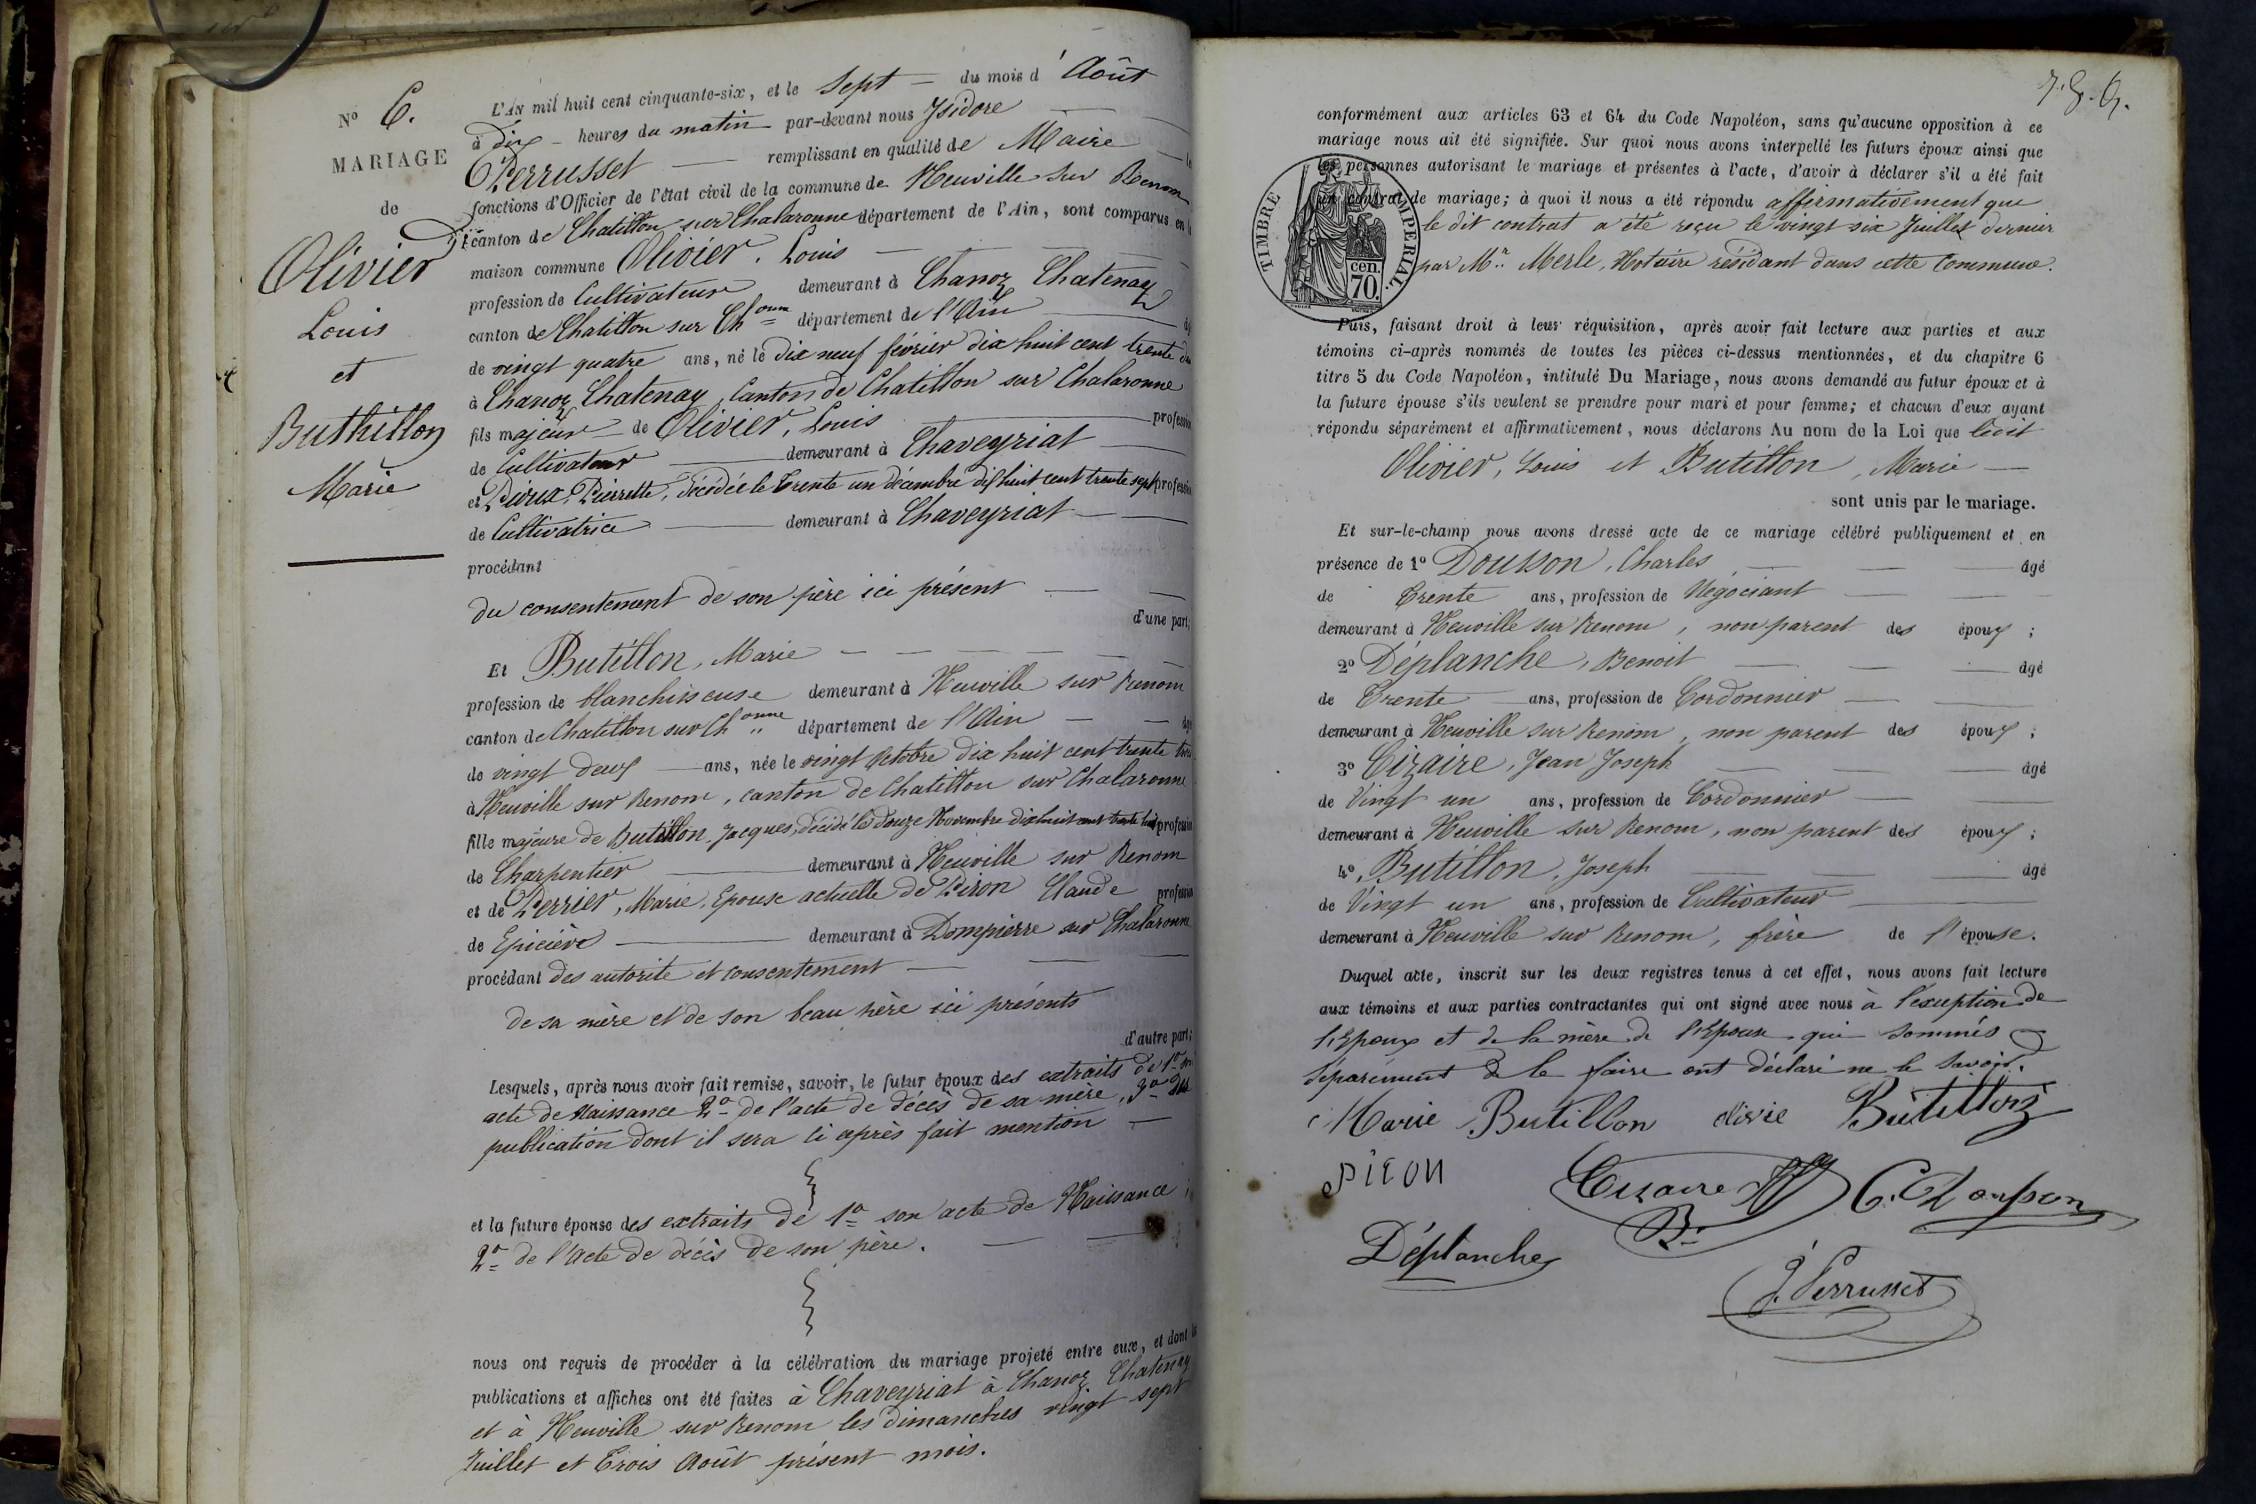 N° 6.
MARIAGE
de
Olivier
Louis
et
Buthillon
Marie
L'AN mil huit cent cinquante-six, et le Sept du mois d'Août
à Dix heures du matin par-devant nous Isidore
Perrusset remplissant en qualité de Maire
fonctions d'Officier de l'état civil de la commune de Neuville sur Renom
canton de Chatillon sur Chalaronne département de l'Ain, sont comparus en
maison commune Olivier, Louis
profession de Cultivateur demeurant à Chanoz Chatenay
canton de Chatillon sur Chonne département de l'Ain
de vingt quatre ans, né le dix neuf février dix huit cent trente
à Chanoz Chatenay, Canton de Chatillon sur Chalaronne
fils majeur de Olivier, Louis profession
de Cultivateur demeurant à Chaveyriat
et Pierrette, Décédée le trente un décembre dix huit cent trente sept profession
de Cultivatrice demeurant à Chaveyriat
procédant
du consentement de son père ici présent
d'une part;
Et Butillon, Marie
profession de blanchisseuse demeurant à Neuville sur Renom
canton de Chatillon sur Chonne département de l'Ain
de vingt deux ans, née le vingt Octobre dix huit cent trente trois
à Neuville sur Renom, canton de Chatillon sur Chalaronne
fille majeure de Butillon, Jacques, décédé le douze Novembre dix huit cent trente profession
de Charpentier demeurant à Neuville sur Renom
et de Perrier, Marie, Epouse actuelle de Piron Claude profession
de Epicière demeurant à Dompierre sur Chalaronne
procédant des autorité et consentement
de sa mère et de son beau père ici présents
d'autre part;
Lesquels, après nous avoir fait remise, savoir, le futur époux des extraits de 1° son
acte de Naissance 2° de l'acte de décès de sa mère, 3° des
publication dont il sera ci après fait mention
et la future épouse des extraits de 1° son acte de Naissance
2° de l'acte de décès de son père.
nous ont requis de procéder à la célébration du mariage projeté entre eux, et dont
publications et affiches ont été faites à Chaveyriat à Chanoz Chatenay
et à Neuville sur Renom les dimanches vingt sept
Juillet et Trois Août présent mois.
conformément aux articles 63 et 64 du Code Napoléon, sans qu'aucune opposition à ce
mariage nous ait été signifiée. Sur quoi nous avons interpellé les futurs époux ainsi que
les personnes autorisant le mariage et présentes à l'acte, d'avoir à déclarer s'il a été fait
un contrat de mariage; à quoi il nous a été répondu affirmativement que
le dit contrat a été reçu le vingt six Juillet dernier
par Mr. Merle, Notaire résidant dans cette Commune.
TIMBRE IMPERIAL.
cen.
70.
Puis, faisant droit à leur réquisition, après avoir fait lecture aux parties et aux
témoins ci-après nommés de toutes les pièces ci-dessus mentionnées, et du chapitre 6
titre 5 du Code Napoléon, intitulé Du Mariage, nous avons demandé au futur époux et à
la future épouse s'ils veulent se prendre pour mari et pour femme; et chacun d'eux ayant
répondu séparément et affirmativement, nous déclarons Au nom de la Loi que ledit
Olivier, Louis et Butillon, Marie
sont unis par le mariage.
Et sur-le-champ nous avons dressé acte de ce mariage célébré publiquement et en
présence de 1° Dousson, Charles âgé
de Trente ans, profession de Négociant
demeurant à Neuville sur Renom, non parent des époux;
2° Déplanche, Benoit âgé
de Trente ans, profession de Cordonnier
demeurant à Neuville sur Renom, non parent des époux;
3° Cizaire, Jean Joseph âgé
de Vingt un ans, profession de Cordonnier
demeurant à Neuville sur Renom, non parent des époux;
4° Butillon, Joseph âgé
de Vingt un ans, profession de Cultivateur
demeurant à Neuville sur Renom, frère de l'épouse.
Duquel acte, inscrit sur les deux registres tenus à cet effet, nous avons fait lecture
aux témoins et aux parties contractantes qui ont signé avec nous à l'exception de
l'Epoux et de la mère de l'Epouse qui sommés
séparément de le faire ont déclaré ne le savoir.
Marie Butillon olivie Butillon
PIRON Cizaire
Déplanche
J. Perrusset